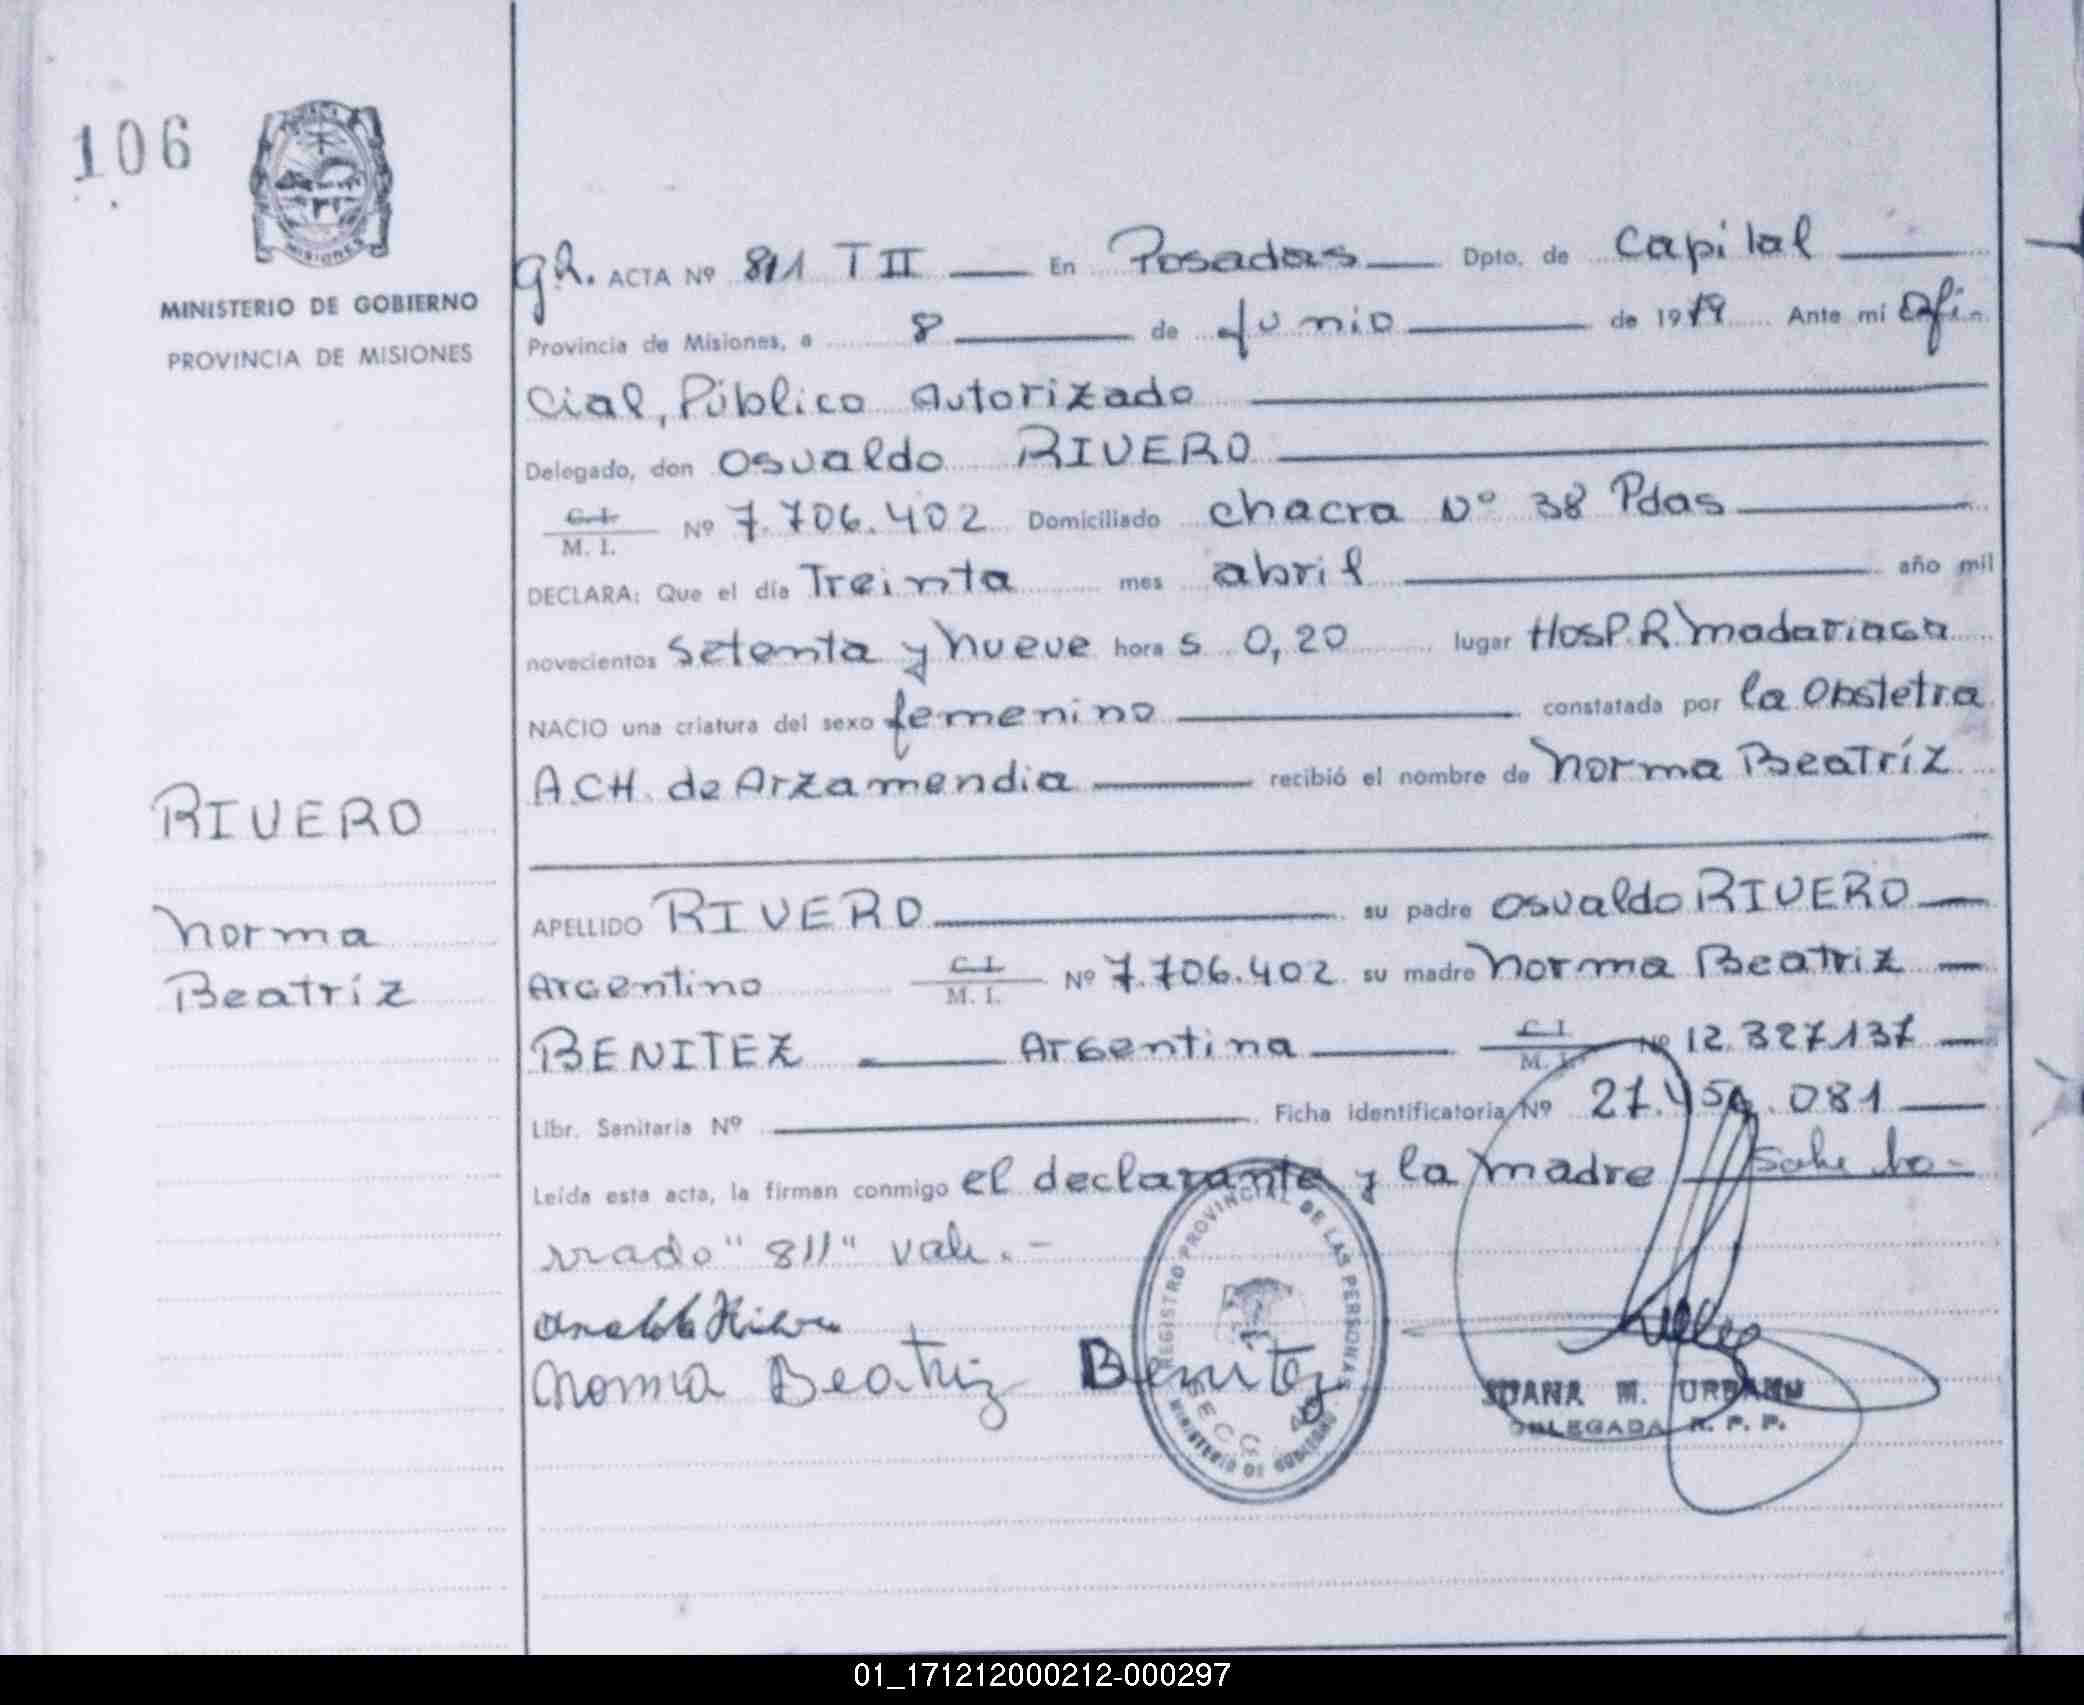 106
MISIONES
MINISTERIO DE GOBIERNO
PROVINCIA DE MISIONES
RIVERO
Norma
Beatríz
gR. ACTA Nº 811 T II En Posadas Dpto. de Capital
Provincia de Misiones, a 8 de Junio de 1979 Ante mi Ofi-
cial, Público Autorizado
Delegado, don Osvaldo RIVERO
C.I. M. I. Nº 7.706.402 Domiciliado chacra Nº 38 Pdas
DECLARA: Que el día Treinta mes abril año mil
novecientos setenta y nueve hora s 0,20 lugar HosP. R. Madariaga
NACIO una criatura del sexo femenino constatada por la Obstetra
A.CH. de Arzamendia recibió el nombre de Norma Beatríz
APELLIDO RIVERO su padre Osvaldo RIVERO
Argentino C.I. M. I. Nº 7.706.402 su madre Norma Beatriz
BENITEZ Argentina C.I. M. I. Nº 12.327.137
Libr. Sanitaria Nº Ficha identificatoria Nº 27.454.081
Leída esta acta, la firman conmigo el declarante y la madre Sobre bo-
rrado "811" vale.-
Norma Beatriz Benitez
REGISTRO PROVINCIAL DE LAS PERSONAS
MINISTERIO DE GOBIERNO
SECC
JUANA M. URBANU
DELEGADA R. P. P.
01_171212000212-000297